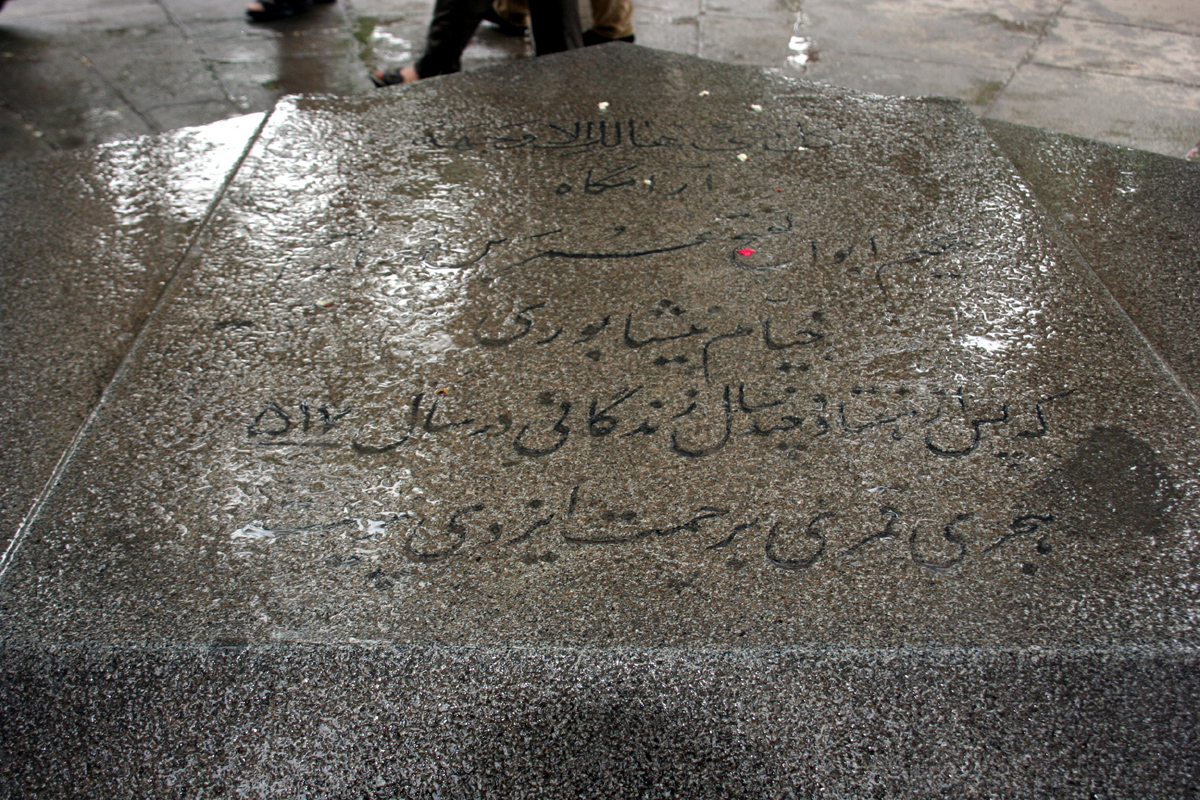 آرامگاه
حکیم ابوالفتح عمر بن
خیام نیشابوری
که پس از هشتاد و چند سال زندگانی در سال ۵۱۷
هجری قمری برحمت ایزدی